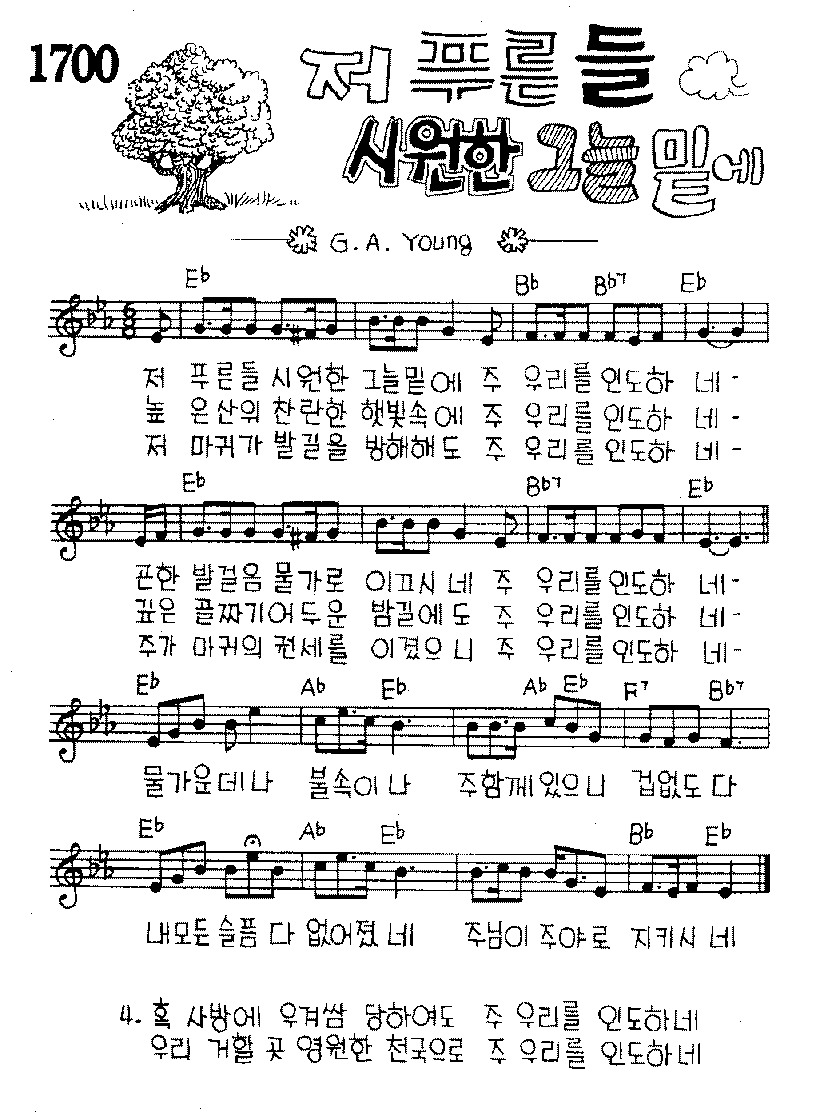 1700
저 푸른 들
시원한 그늘 밑에
G. A. Young
Eb Bb Bb7 Eb
저 푸른들 시원한 그늘밑에 주 우리를인도하 네-
높 은산위 찬란한 햇빛속에 주 우리를인도하 네-
저 마귀가 발길을 방해해도 주 우리를인도하 네-
Eb Bb7 Eb
곤한 발걸음 물가로 이끄시네 주 우리를인도하 네-
깊은 골짜기어두운 밤길에도 주 우리를인도하 네-
주가 마귀의 권세를 이겼으니 주 우리를인도하 네-
Eb Ab Eb Ab Eb F7 Bb7
물가운데나 불속이나 주함께있으니 겁없도다
Eb Ab Eb Bb Eb
내모든슬픔 다 없어졌네 주님이주야로 지키시네
4. 혹 사방에 우겨쌈 당하여도 주 우리를 인도하네
우리 거할 곳 영원한 천국으로 주 우리를 인도하네